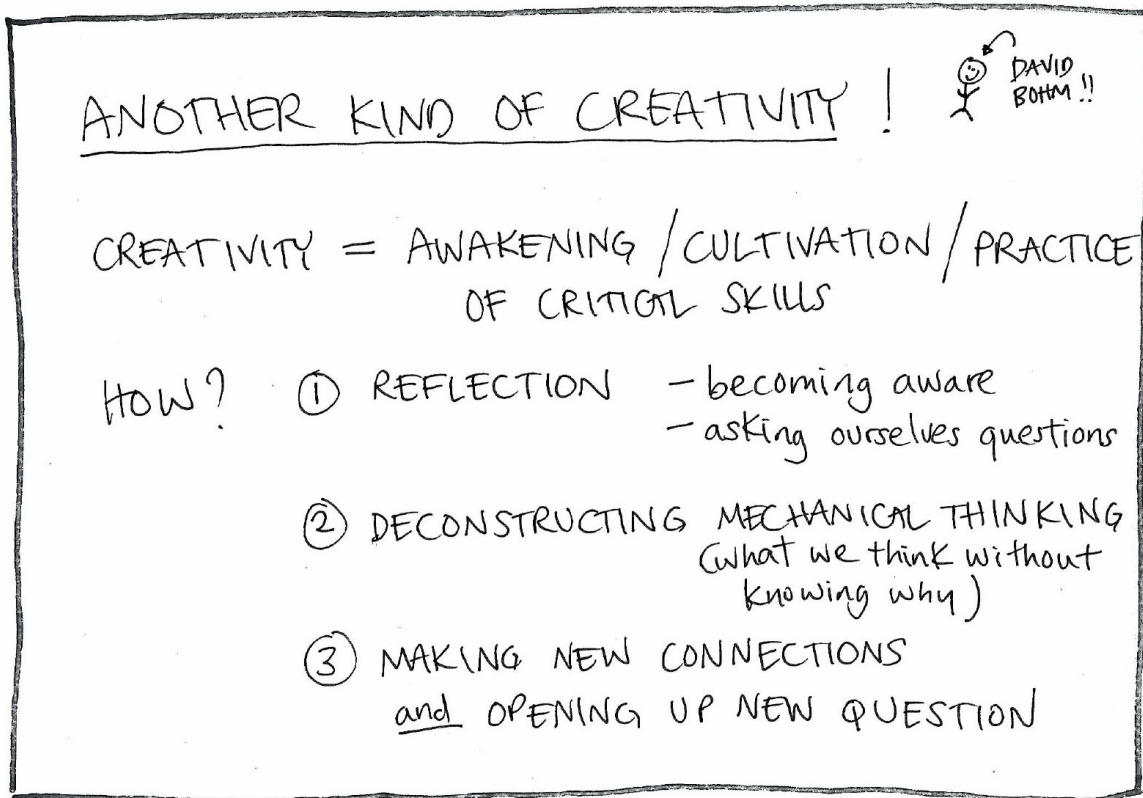 ANOTHER KIND OF CREATIVITY !
DAVID
BOHM !!
CREATIVITY = AWAKENING / CULTIVATION / PRACTICE
OF CRITICAL SKILLS
HOW? ① REFLECTION - becoming aware
- asking ourselves questions
② DECONSTRUCTING MECHANICAL THINKING
(what we think without
knowing why)
③ MAKING NEW CONNECTIONS
and OPENING UP NEW QUESTION